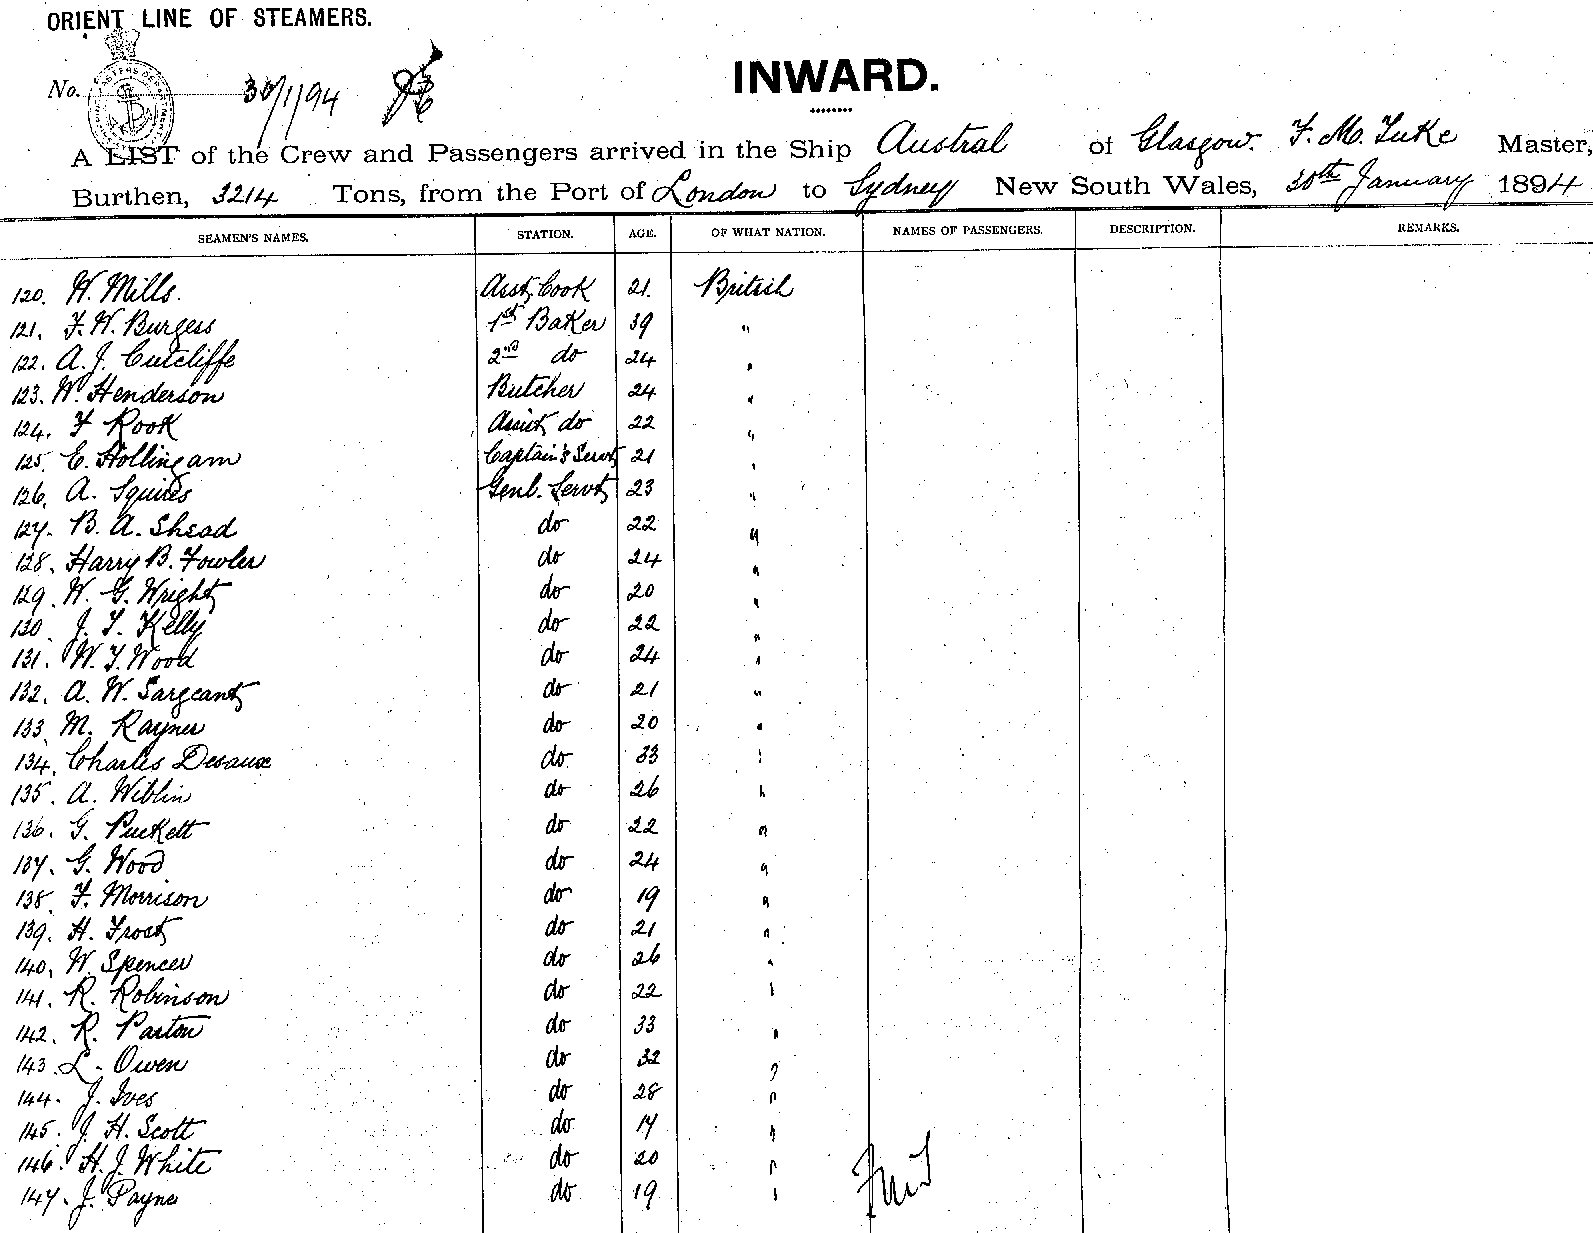 ORIENT LINE OF STEAMERS.
No. 30/1/94
INWARD.
A LIST of the Crew and Passengers arrived in the Ship Austral of Glasgow. F. M. Tuke Master,
Burthen, 3214 Tons, from the Port of London to Sydney New South Wales, 30th January 1894
SEAMEN'S NAMES. STATION. AGE. OF WHAT NATION. NAMES OF PASSENGERS. DESCRIPTION. REMARKS.
120. W. Mills. Asst. Cook 21. British
121. F. W. Burgess 1st Baker 39 "
122. A. J. Cutcliffe 2nd do 24 "
123. W. Henderson Butcher 24 "
124. F Rook Assist do 22 "
125. E. Hollingam Captain's Servt 21 "
126. A. Squires Genl. Servt 23 "
127. B. A. Shead do 22 "
128. Harry B. Fowler do 24 "
129. W. G. Wright do 20 "
130. J. T. Kelly do 22 "
131. W. T. Wood do 24 "
132. A. W. Sargeant do 21 "
133. M. Rayner do 20 "
134. Charles Desaux do 33 "
135. A. Wiblin do 26 "
136. G. Puckett do 22 "
137. G. Wood do 24 "
138. F. Morrison do 19 "
139. H. Frost do 21 "
140. W. Spencer do 26 "
141. R. Robinson do 22 "
142. R. Parton do 33 "
143. L. Owen do 32 "
144. J. Ives do 28 "
145. J. H. Scott do 17 "
146. H. J. White do 20 "
147. J. Payne do 19 "